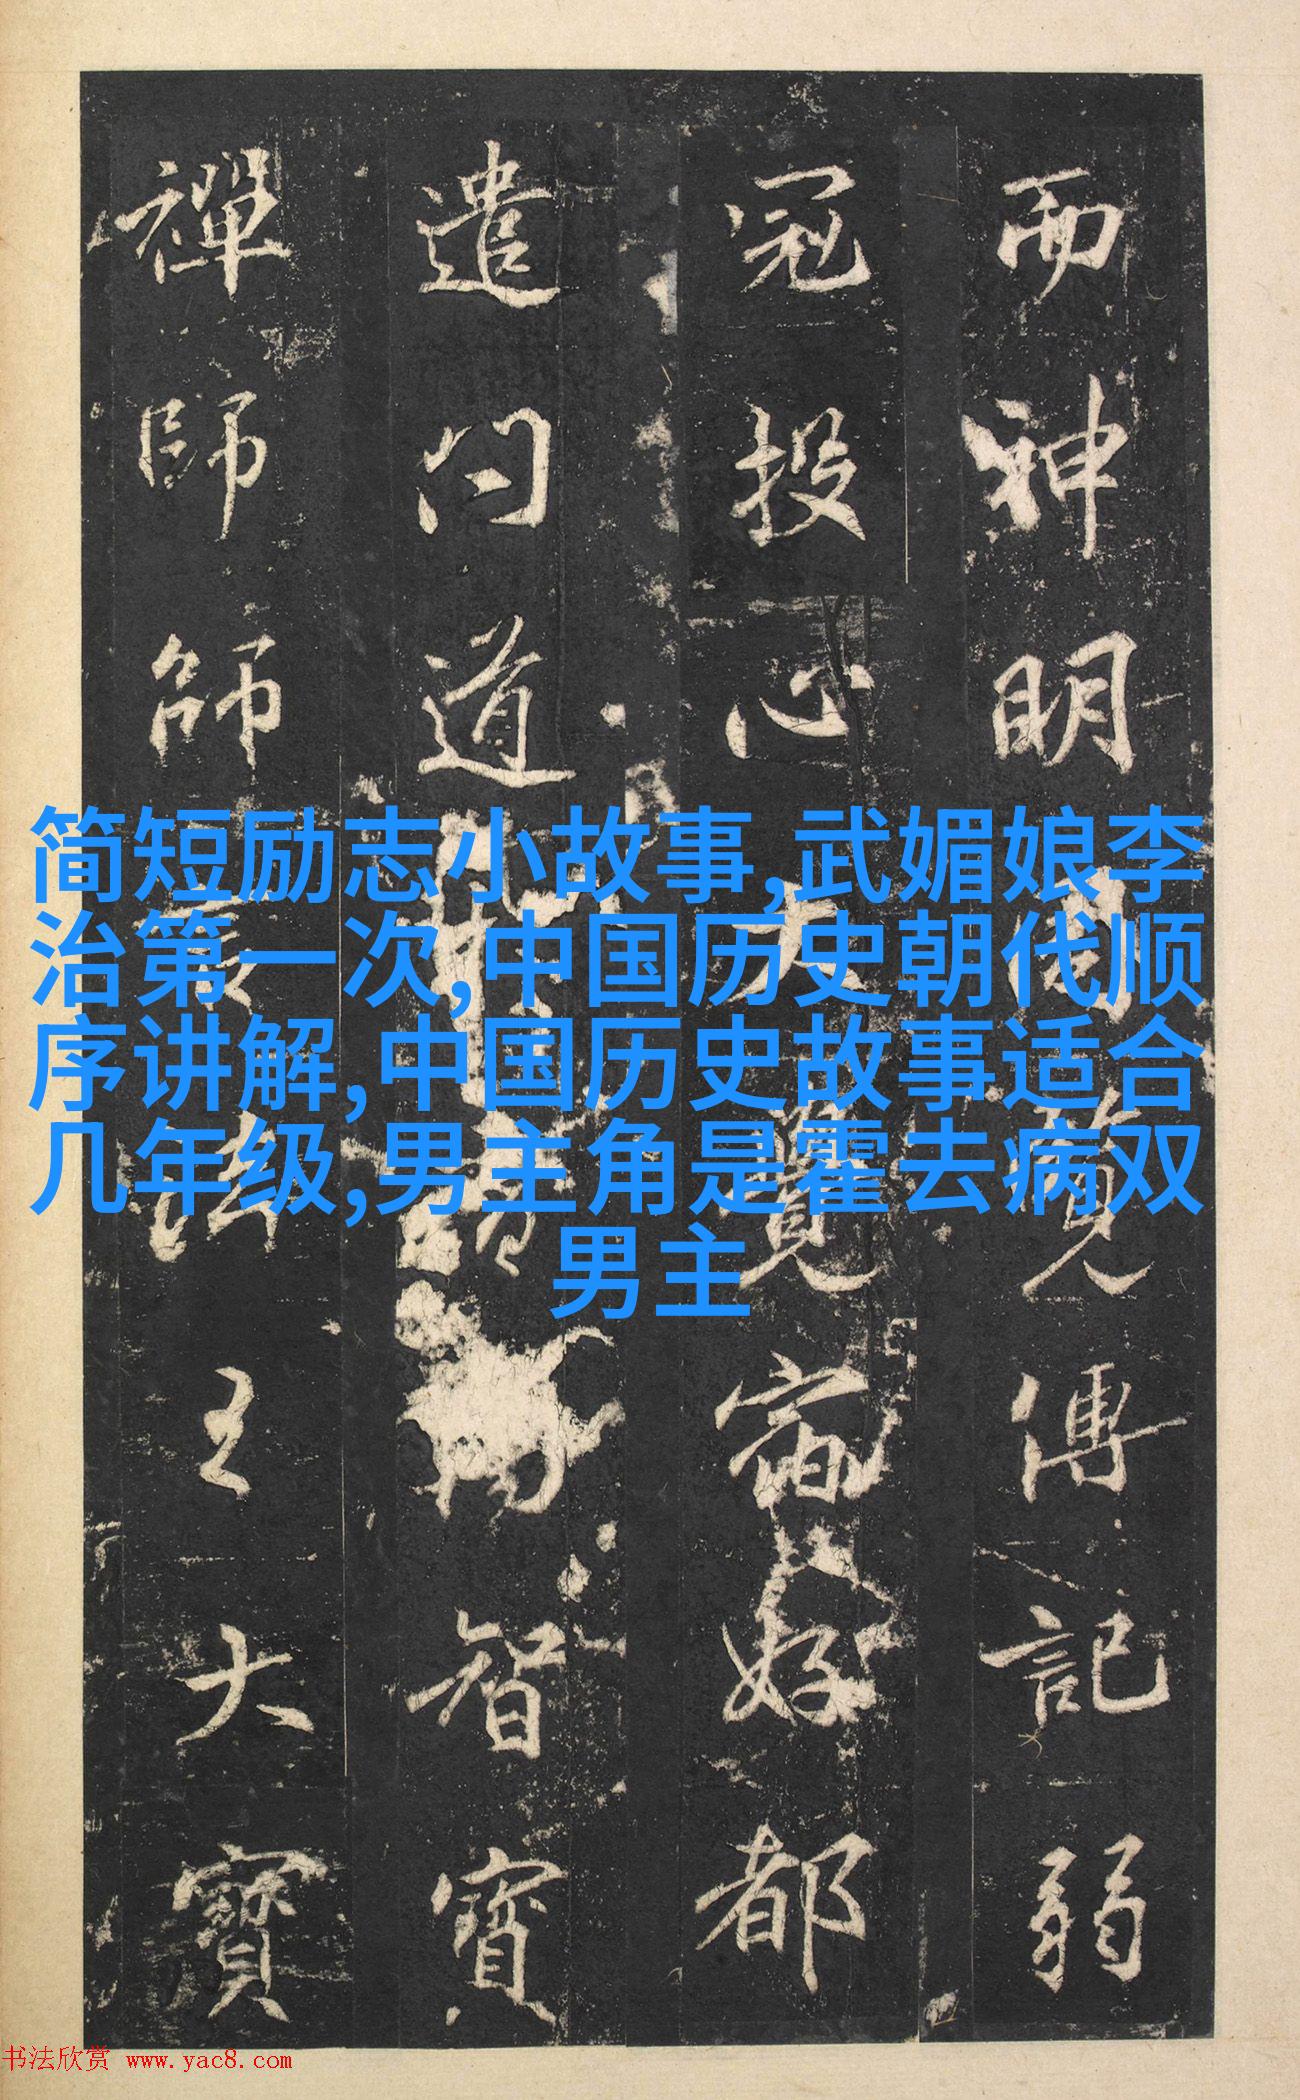 而神明周覽傳記弱
冠投心大覺宿好都
遣問道智寶
禪師師法王大寶
简短励志小故事,武媚娘李
治第一次,中国历史朝代顺
序讲解,中国历史故事适合
几年级,男主角是霍去病双
男主
书法欣赏 www.yac8.com